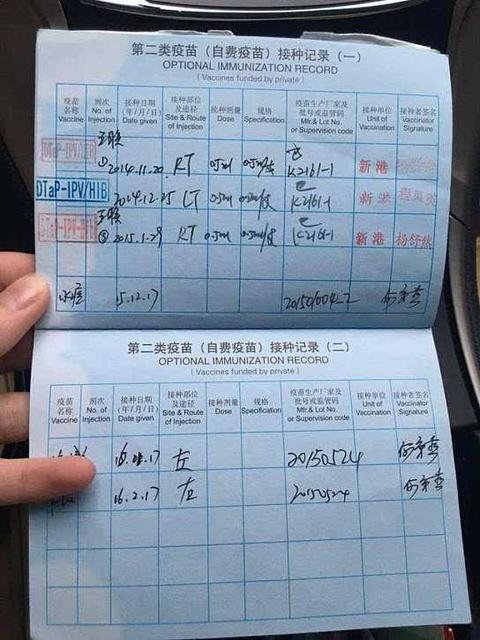 第二类疫苗（自费疫苗）接种记录（一）
OPTIONAL IMMUNIZATION RECORD
( Vaccines funded by private )
疫苗名称 Vaccine 剂次 No. of Injection 接种日期（年/月/日）Date given 接种部位及途径 Site & Route of Injection 接种剂量 Dose 规格 Specification 疫苗生产厂家及批号或监管码 Mfr.& Lot No. or Supervision code 接种单位 Unit of Vaccination 接种者签名 Vaccinator Signature
五联
① 2014.11.20 RT K2161-1 新港
DTaP-IPV/HIB 2014.12.25 LT K2161-1 新港
五联
③ 2015.1.29 RT K2161-1 新港 杨舒
水痘 15.12.17
第二类疫苗（自费疫苗）接种记录（二）
OPTIONAL IMMUNIZATION RECORD
( Vaccines funded by private )
疫苗名称 Vaccine 剂次 No. of Injection 接种日期（年/月/日）Date given 接种部位及途径 Site & Route of Injection 接种剂量 Dose 规格 Specification 疫苗生产厂家及批号或监管码 Mfr.& Lot No. or Supervision code 接种单位 Unit of Vaccination 接种者签名 Vaccinator Signature
左 20150524
16.2.17 左 20150524